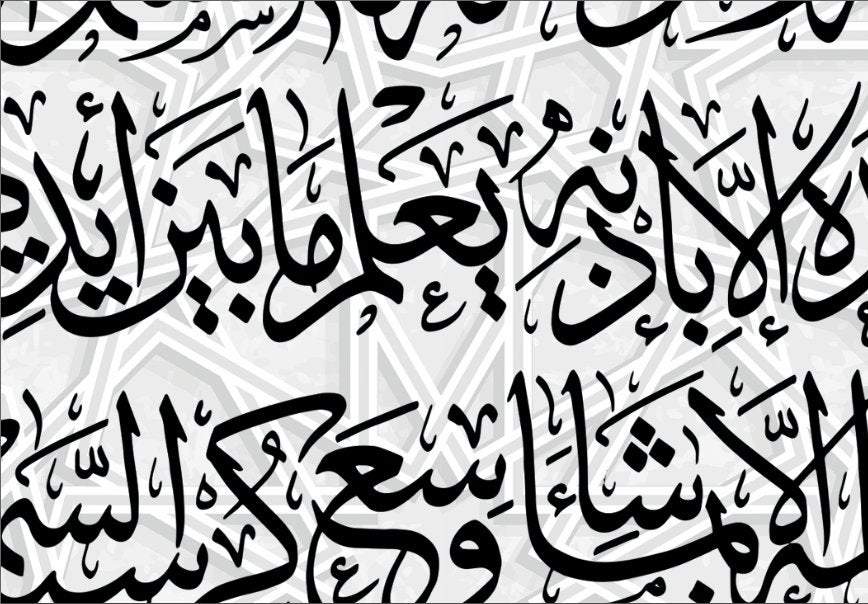 ه إلا بإذنه يعلم ما بين أيديـ
ـه إلا بما شاء وسع كرسيه السمـ